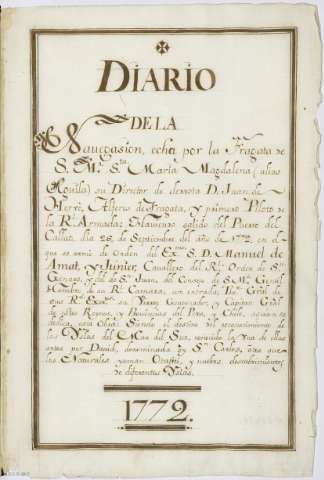 DIARIO
DE LA
Navegasion, echa por la Fragata de
S. M. Sta. Maria Magdalena (alias
Aguila) su Director de derrota D. Juan de
Herve, Alferez de Fragata, y primero Piloto de
la Rl. Armada: Haviendo salido del Puerto del
Callao, dia 26, de Septiembre del año de 1772, en el
que se de orden del Exmo. S. D. Manuel de
Amat, y Junient, Cavallero del Rl. Orden de Sn.
Genaro, y del de Sn. Juan, del Consejo de S. M. Gentil
Hombre de su Rl. Camara, con entrada, Tente. Gral. de
sus Rs. Exos. su Virrey Governador, y Capitan Gral.
de estos Reynos, y Provincias del Peru, y Chile, a quien se
dedica esta Obra: Siendo el destino del reconocimiento de
las Yslas del Mar del Sur, la Una de ellas
antes por David, denominada Sn. Carlos, otra que
los Naturales llaman Otaeite, y nuevos descubrimientos
de diferentes Yslas.
1772.